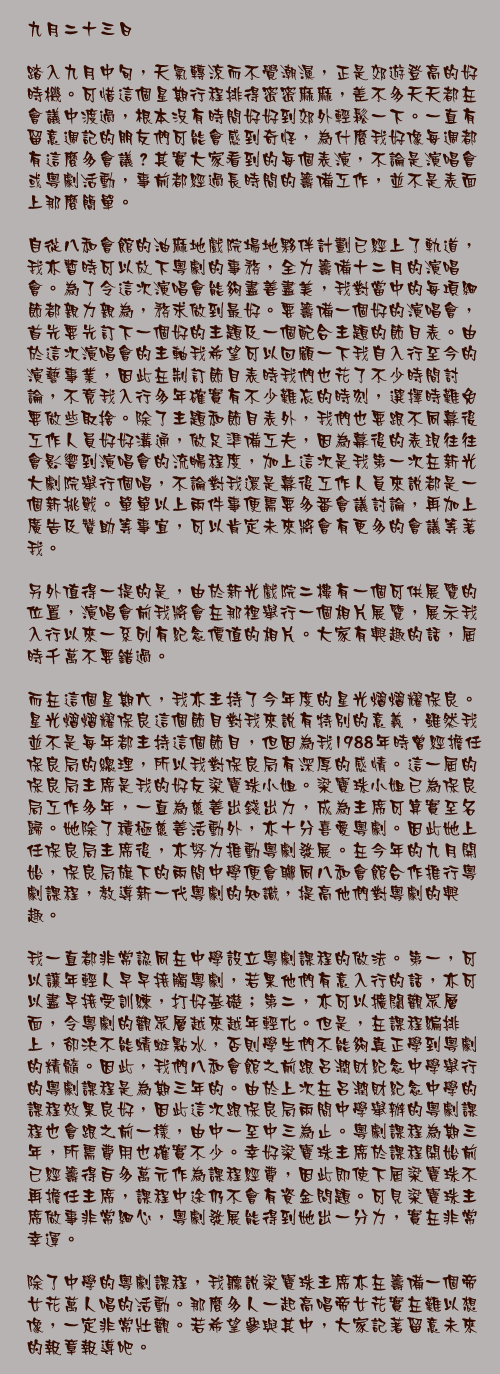 九月二十三日
踏入九月中旬，天氣轉涼而不覺潮濕，正是郊遊登高的好
時機。可惜這個星期行程排得密密麻麻，差不多天天都在
會議中渡過，根本沒有時間好好到郊外輕鬆一下。一直有
留意週記的朋友們可能會感到奇怪，為什麼我好像每週都
有這麼多會議？其實大家看到的每個表演，不論是演唱會
或粵劇活動，事前都經過長時間的籌備工作，並不是表面
上那麼簡單。
自從八和會館的油麻地戲院場地夥伴計劃已經上了軌道，
我亦暫時可以放下粵劇的事務，全力籌備十二月的演唱
會。為了令這次演唱會能夠盡善盡美，我對當中的每項細
節都親力親為，務求做到最好。要籌備一個好的演唱會，
首先要先訂下一個好的主題及一個配合主題的節目表。由
於這次演唱會的主軸我希望可以回顧一下我自入行至今的
演藝事業，因此在制訂節目表時我們也花了不少時間討
論，不竟我入行多年確實有不少難忘的時刻，選擇時難免
要做些取捨。除了主題和節目表外，我們也要跟不同幕後
工作人員好好溝通，做足準備工夫，因為幕後的表現往往
會影響到演唱會的流暢程度，加上這次是我第一次在新光
大劇院舉行個唱，不論對我還是幕後工作人員來說都是一
個新挑戰。單單以上兩件事便需要多番會議討論，再加上
廣告及贊助等事宜，可以肯定未來將會有更多的會議等著
我。
另外值得一提的是，由於新光戲院二樓有一個可供展覽的
位置，演唱會前我將會在那裡舉行一個相片展覽，展示我
入行以來一系列有紀念價值的相片。大家有興趣的話，屆
時千萬不要錯過。
而在這個星期六，我亦主持了今年度的星光熠熠耀保良。
星光熠熠耀保良這個節目對我來說有特別的意義，雖然我
並不是每年都主持這個節目，但因為我1988年時曾經擔任
保良局的總理，所以我對保良局有深厚的感情。這一屆的
保良局主席是我的好友梁寶珠小姐。梁寶珠小姐已為保良
局工作多年，一直為慈善出錢出力，成為主席可算實至名
歸。她除了積極慈善活動外，亦十分喜愛粵劇。因此她上
任保良局主席後，亦努力推動粵劇發展。在今年的九月開
始，保良局旗下的兩間中學便會聯同八和會館合作推行粵
劇課程，教導新一代粵劇的知識，提高他們對粵劇的興
趣。
我一直都非常認同在中學設立粵劇課程的做法。第一，可
以讓年輕人早早接觸粵劇，若果他們有意入行的話，亦可
以盡早接受訓練，打好基礎；第二，亦可以擴闊觀眾層
面，令粵劇的觀眾層越來越年輕化。但是，在課程編排
上，卻決不能蜻蜓點水，否則學生們不能夠真正學到粵劇
的精髓。因此，我們八和會館之前跟呂潤財紀念中學舉行
的粵劇課程是為期三年的。由於上次在呂潤財紀念中學的
課程效果良好，因此這次跟保良局兩間中學舉辦的粵劇課
程也會跟之前一樣，由中一至中三為止。粵劇課程為期三
年，所需費用也確實不少。幸好梁寶珠主席於課程開始前
已經籌得百多萬元作為課程經費，因此即使下屆梁寶珠不
再擔任主席，課程中途仍不會有資金問題。可見梁寶珠主
席做事非常細心，粵劇發展能得到她出一分力，實在非常
幸運。
除了中學的粵劇課程，我聽說梁寶珠主席亦在籌備一個帝
女花萬人唱的活動。那麼多人一起高唱帝女花實在難以想
像，一定非常壯觀。若希望參與其中，大家記著留意未來
的報章報導吧。